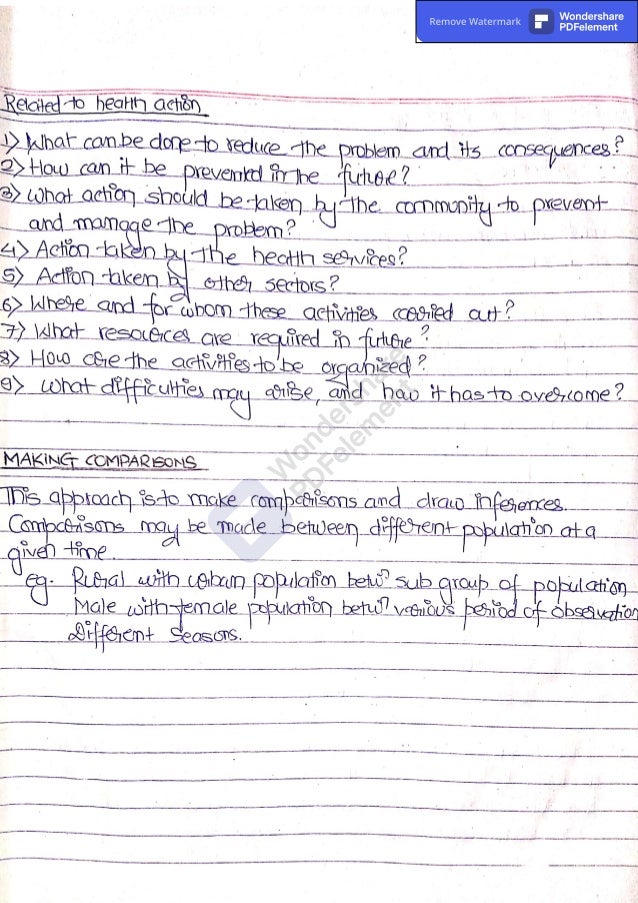 Remove Watermark Wondershare PDFelement
Related to health action
1) What can be done to reduce the problem and its consequences?
2) How can it be prevented in the future?
3) What action should be taken by the community to prevent
and manage the problem?
4) Action taken by the health services?
5) Action taken by other sectors?
6) Where and for whom these activities carried out?
7) What resources are required in future?
8) How are the activities to be organized?
9) What difficulties may arise, and how it has to overcome?
Wondershare
PDFelement
MAKING COMPARISONS
This approach is to make comparisons and draw inferences.
Comparisons may be made between different population at a
given time.
eg. Rural with urban population betn sub group of population
Male with female population betn various period of observation
Different seasons.